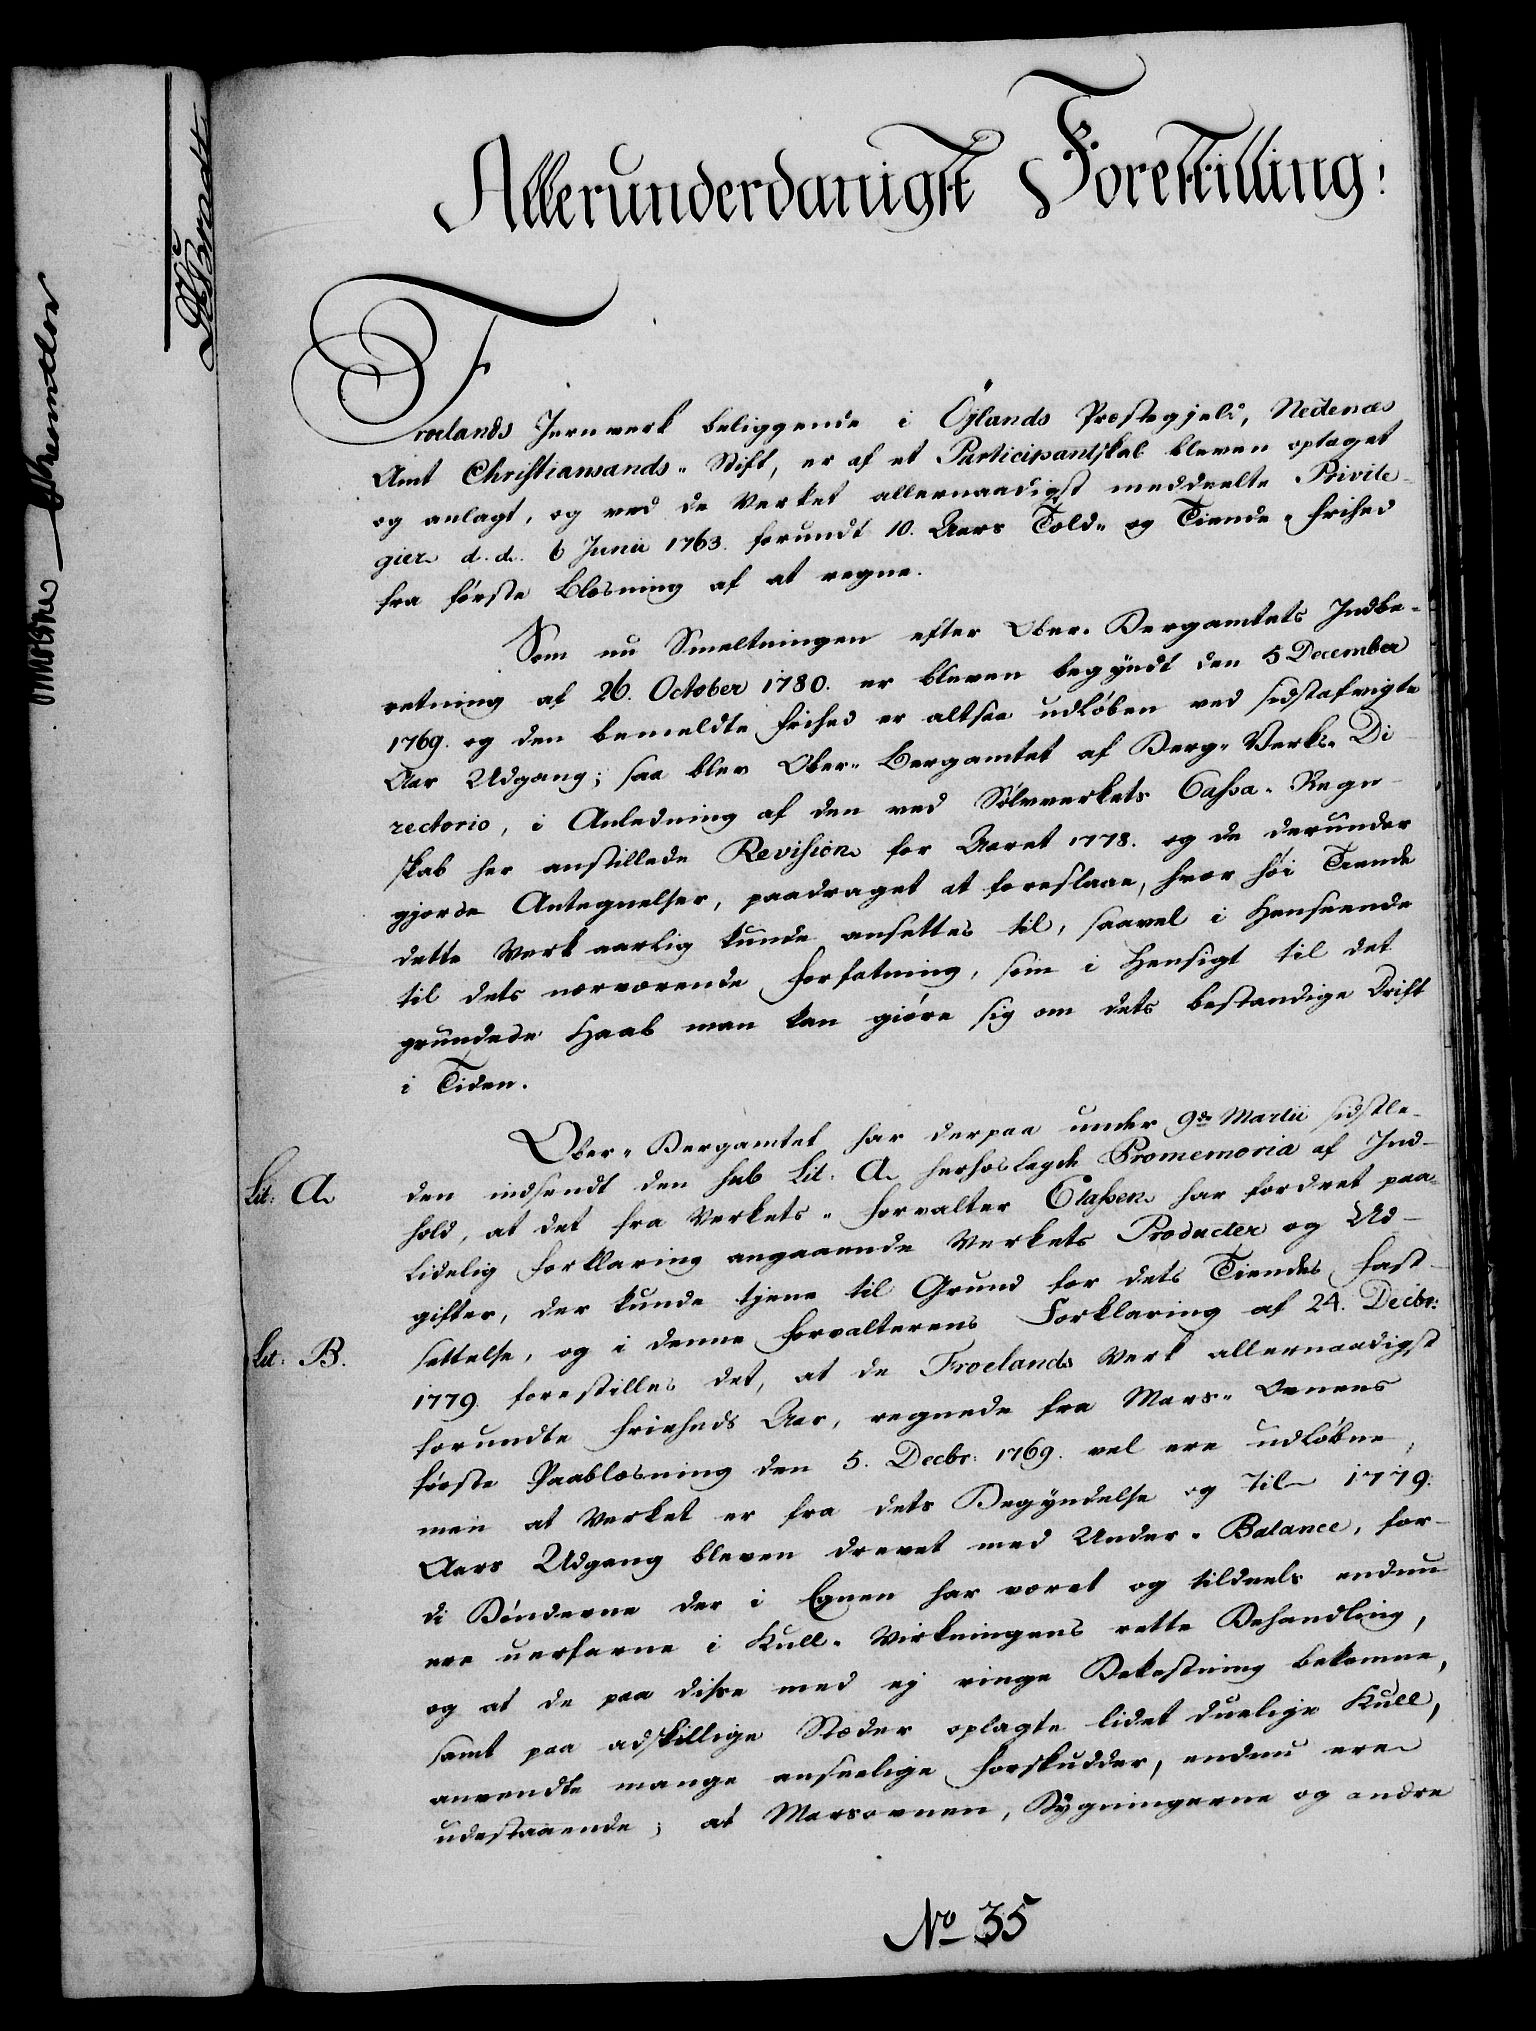 Allerunderdanigst Forestilling:
Froelands Jernverk beliggende i Öylands Præstegjeld, Nedenæs
Amt Christiansands-Stift, er af et Participantskab bleven optaget
og anlagt, og ved de Verket allernaadigst meddeelte Privile-
gier d. d. 6 Junii 1763. forundt 10. Aars Told- og Tiende-Frihed
fra første Blæsning af at regne.
Som nu Smeltningen efter Ober-Bergamtets Indbe-
retning af 26. October 1780. er bleven begyndt den 5 December
1769. og den bemeldte Frihed er altsaa udløben ved sidstafvigte
Aar Udgang; saa blev Ober-Bergamtet af Berg-Verks-Di-
rectorio, i Anledning af den ved Sølvverkets Cassa-Regn-
skab her anstillede Revision for Aaret 1778. og de derunder
gjorde Antegnelser, paadraget at foreslaae, hvor høi Tiende
dette Verk aarlig kunde ansettes til, saavel i Henseende
til dets nærværende Forfatning, som i Hensigt til det
grundede Haab man kan giøre sig om dets bestandige Drift
i Tiden.
Ober-Bergamtet har derpaa under 9de Martii sidstle-
Lit: A. den indsendt den sub Lit. A. herhoslagde Promemoria af Ind-
hold, at det fra Verkets-Forvalter Classen har fordret paa-
lidelig Forklaring angaaende Verkets Producter og Ud-
gifter, der kunde tjene til Grund for dets Tiendes Fast-
Lit: B. settelse, og i denne Forvalterens Forklaring af 24. Decbr:
1779. forestilles det, at de Froelands Verk allernaadigst
forundte Friheds Aar, regnede fra Mars-Ovnens
første Paablæsning den 5. Decbr: 1769. vel ere udløbne,
men at Verket er fra dets Begyndelse og til 1779.
Aars Udgang bleven drevet med Under-Balance, for-
di Bönderne der i Egnen har været og tildeels endnu
ere uerfarne i Kull-Virkningens rette Behandling,
og at de paa disse med ej ringe Bekostning bekomne,
samt paa adskillige Stæder oplagte lidet duelige Kull,
anvendte mange anseelige Forskudder, endnu ere
udestaaende; at Marsovnen, Bygningerne og andre
No 35